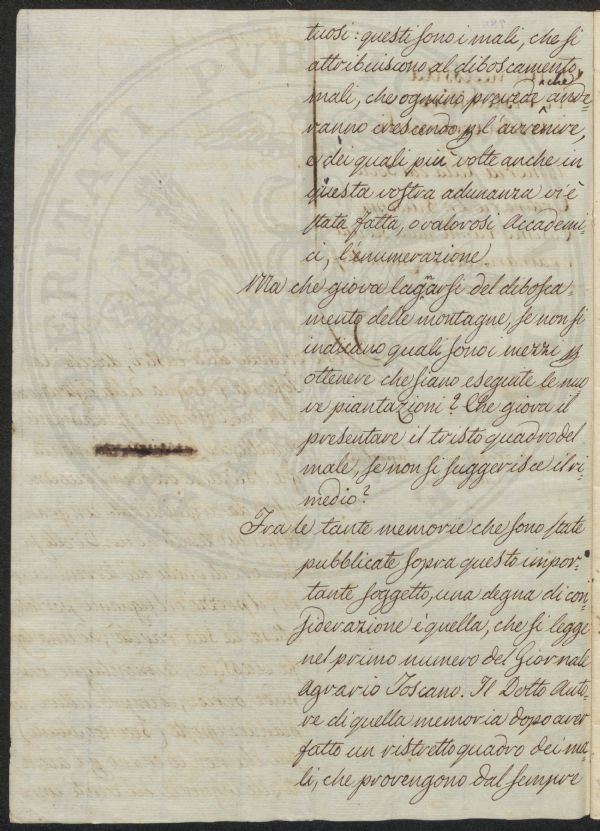 tuosi: questi sono i mali, che si
attribuiscono al diboscamento,
mali, che ognuno prevede che ande-
ranno crescendo p l'avvenire,
e dei quali più volte anche in
questa vostra adunanza vi è
stata fatta, o valorosi Accademi-
ci, l'enumerazione.
Ma che giova lagnarsi del disbosca-
mento delle montagne, se non si
indicano quali sono i mezzi p
ottenere che siano eseguite le nuo
ve piantazioni? Che giova il
presentare il tristo quadro del
male, se non si suggerisce il ri-
medio?
Fra le tante memorie che sono state
pubblicate sopra questo impor-
tante soggetto, una degna di con-
siderazione è quella, che si legge
nel primo numero del Giornale
Agrario Toscano. Il Dotto Auto-
re di quella memoria dopo aver
fatto un ristretto quadro dei ma-
li, che provengono dal sempre